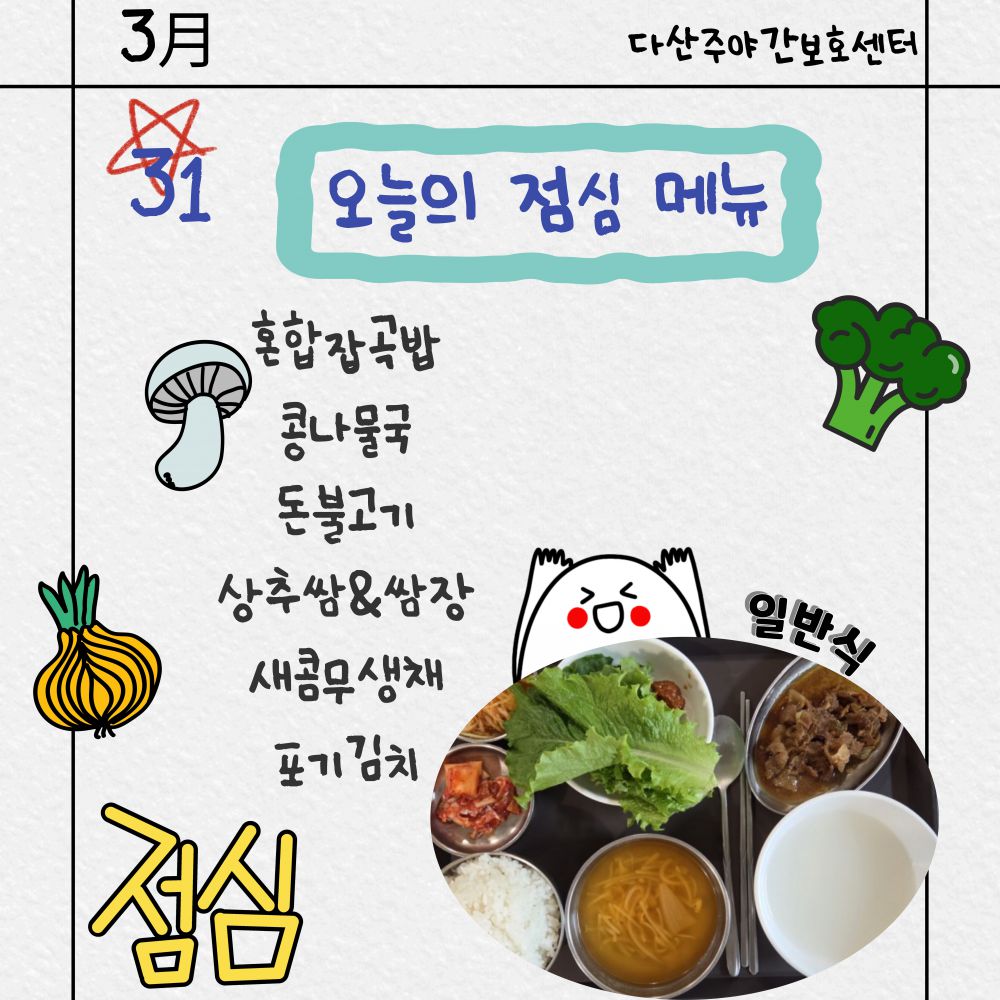 3月
다산주야간보호센터
31
오늘의 점심 메뉴
혼합잡곡밥
콩나물국
돈불고기
상추쌈&쌈장
새콤무생채
포기김치
일반식
점심